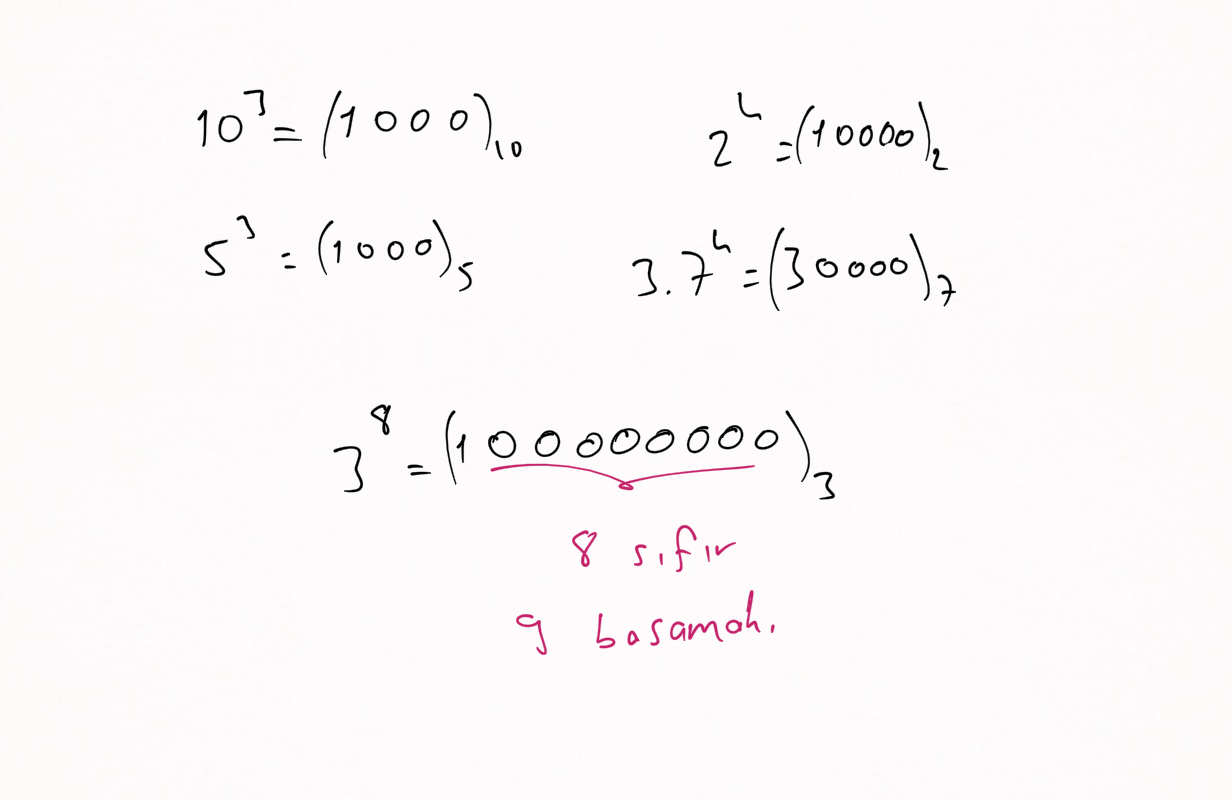 10³ = (1000)₁₀
2⁴ = (10000)₂
5³ = (1000)₅
3.7⁴ = (30000)₇
3⁸ = (100000000)₃
8 sıfır
9 basamak.